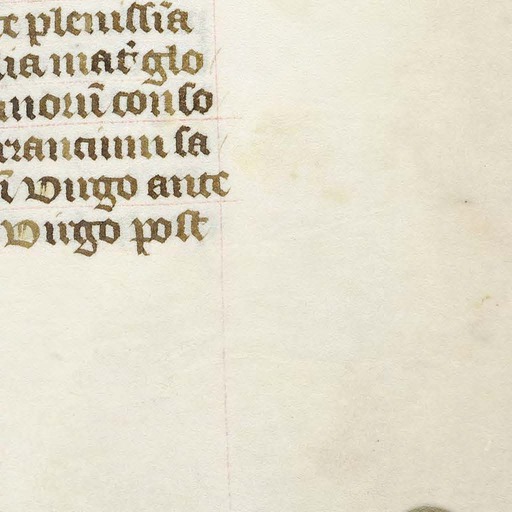 te plenissīa
lia mat̄ glo
anorū conso
rrancium sa
ū virgo ante
virgo post